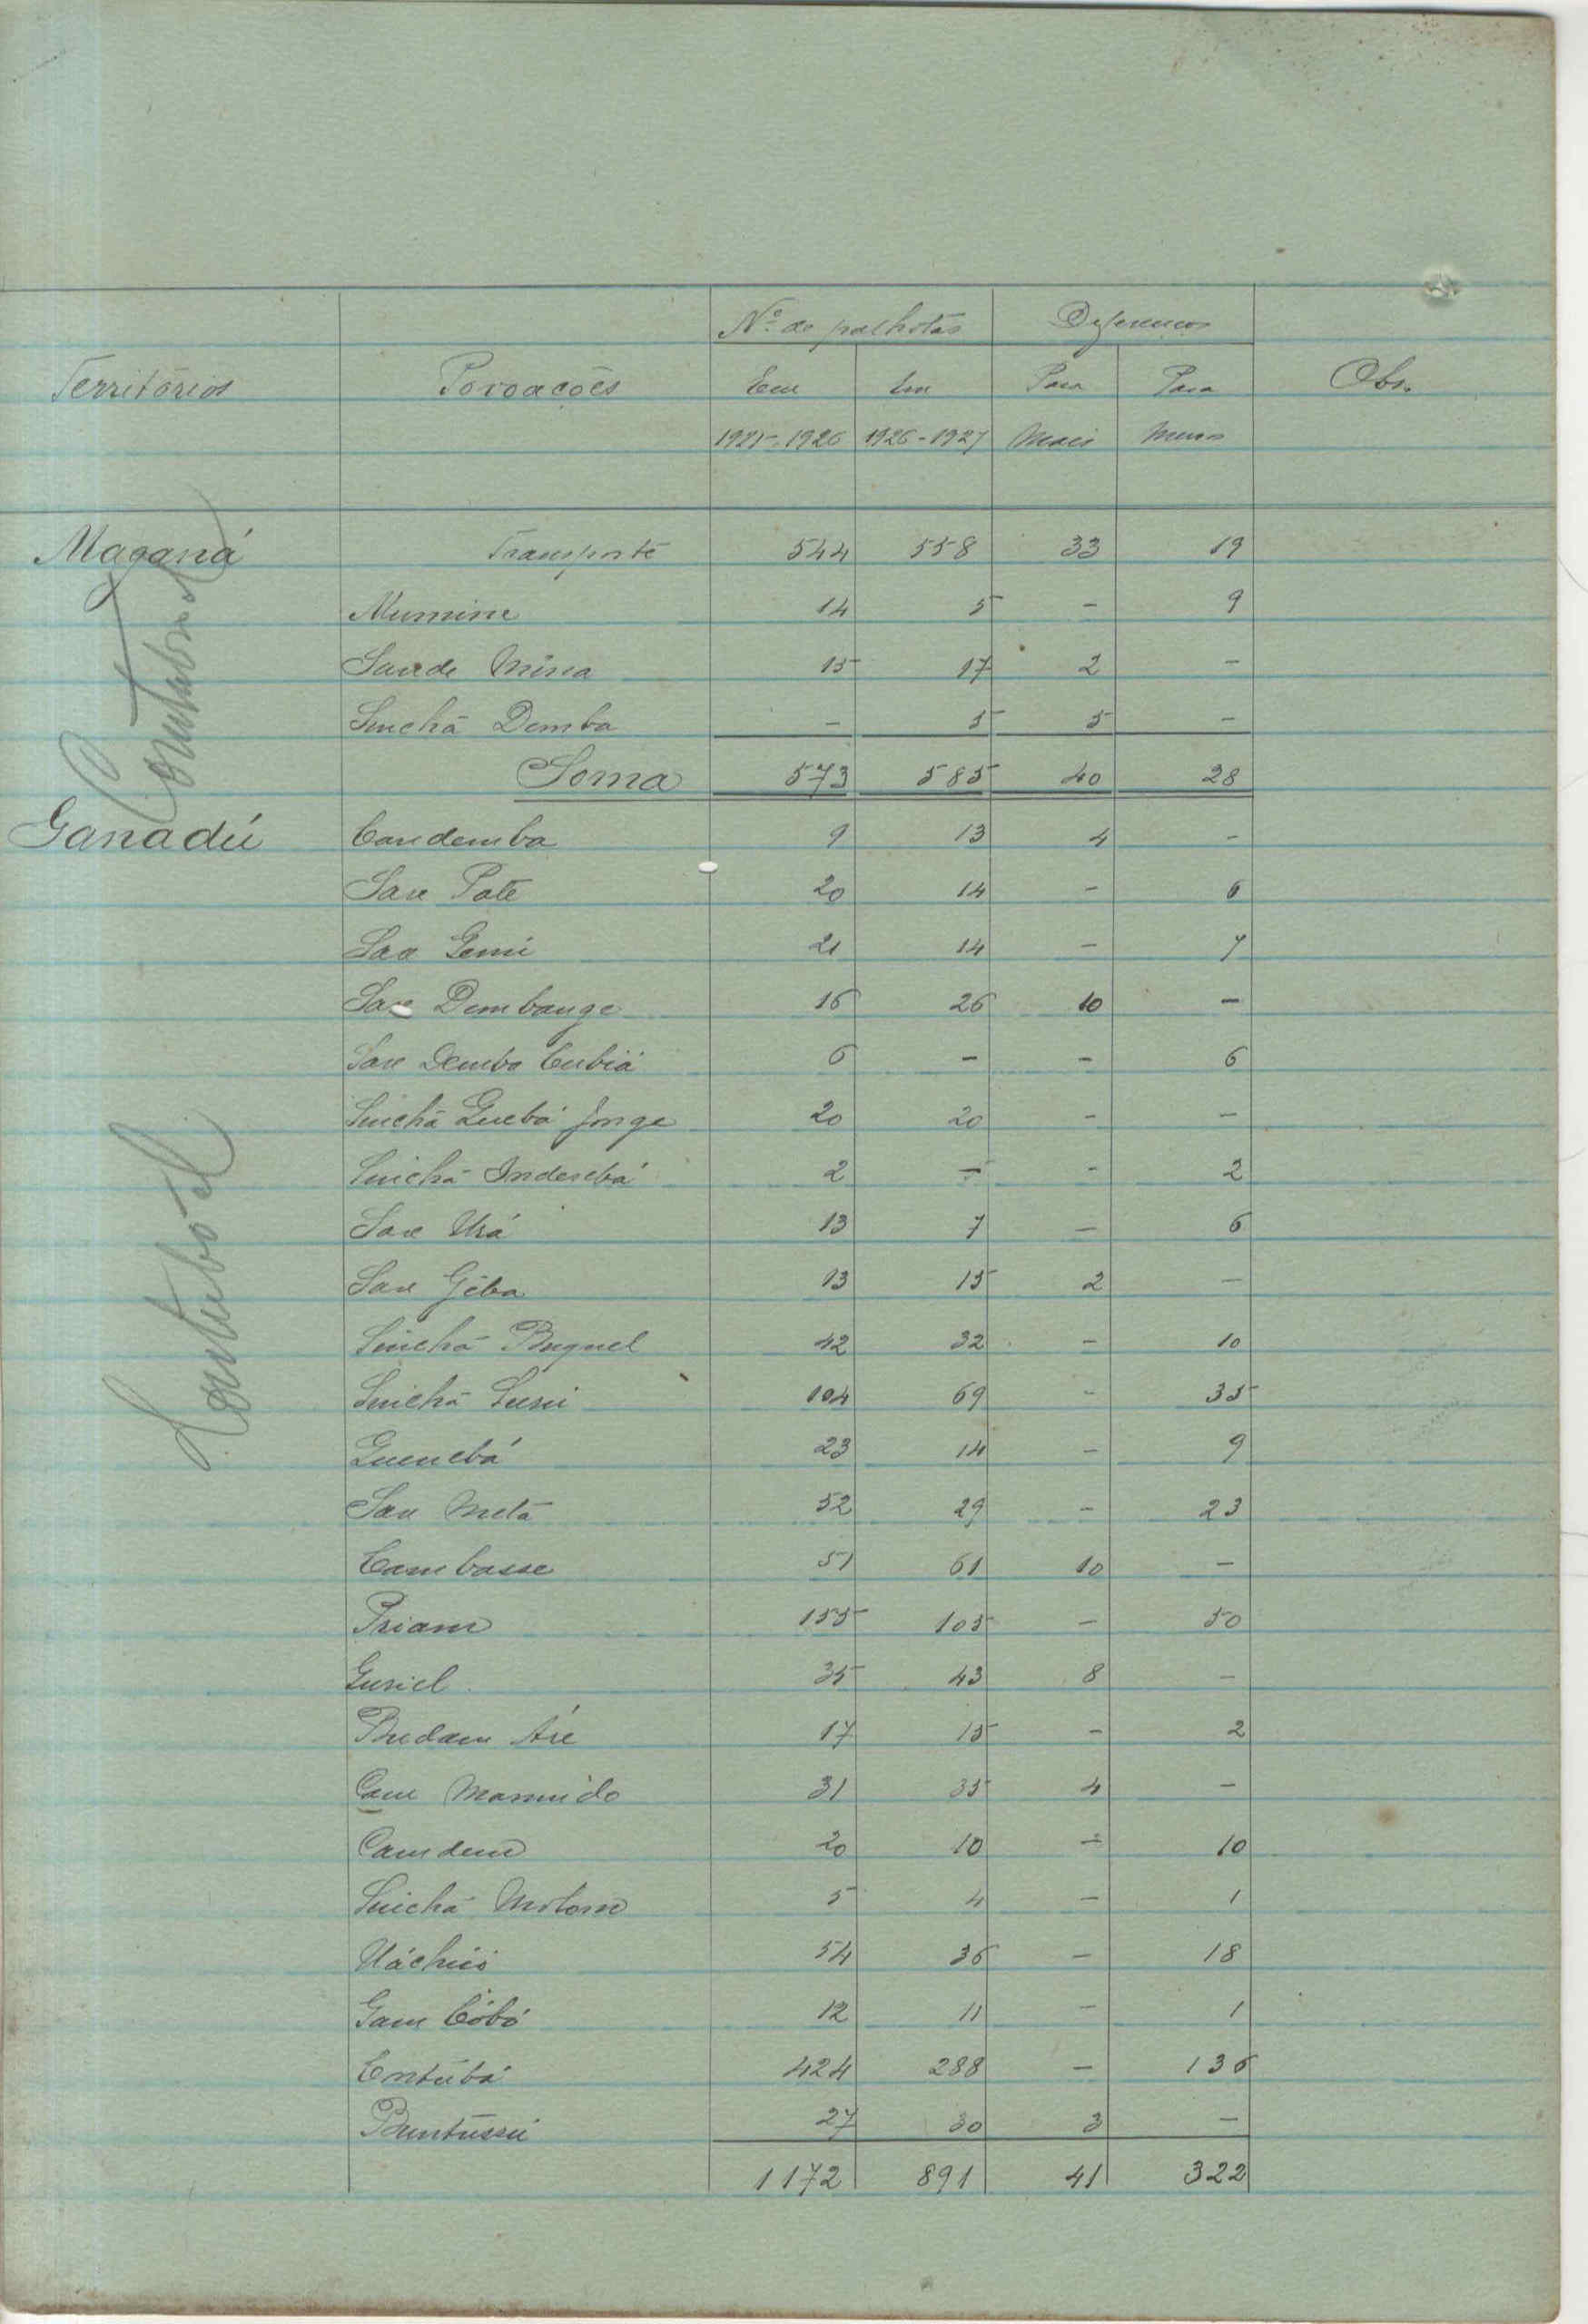 Nº de palhotas Diferenças
Territórios Povoações Em Em Para Para Obs.
1925-1926 1926-1927 Mais Menos
Maganá Transporte 544 558 33 19
Mumine 14 5 - 9
Sande Mina 15 17 2 -
Sinchã Demba - 5 5 -
Soma 573 585 40 28
Ganadú Candemba 9 13 4 -
Sare Paté 20 14 - 6
21 14 - 7
Sare Dembange 16 26 10 -
Sare Demba Cubiá 6 - - 6
Sinchã Quebá Jorge 20 20 - -
Sinchã 2 - - 2
Sare Urá 13 7 - 6
Sare Gêba 13 15 2 -
Sinchã Buguel 42 32 - 10
Sinchã 104 69 - 35
Guenebá 23 14 - 9
Sare Metá 52 29 - 23
Cambasse 51 61 10 -
Priame 155 105 - 50
Guriel 35 43 8 -
17 15 - 2
Cam Mamudo 31 35 4 -
Camdem 20 10 - 10
Sinchã Molom 5 4 - 1
54 36 - 18
Gam Cóbó 12 11 - 1
Contubá 424 288 - 136
Buntussú 27 30 3 -
1172 891 41 322
Contuboel
Contuboel